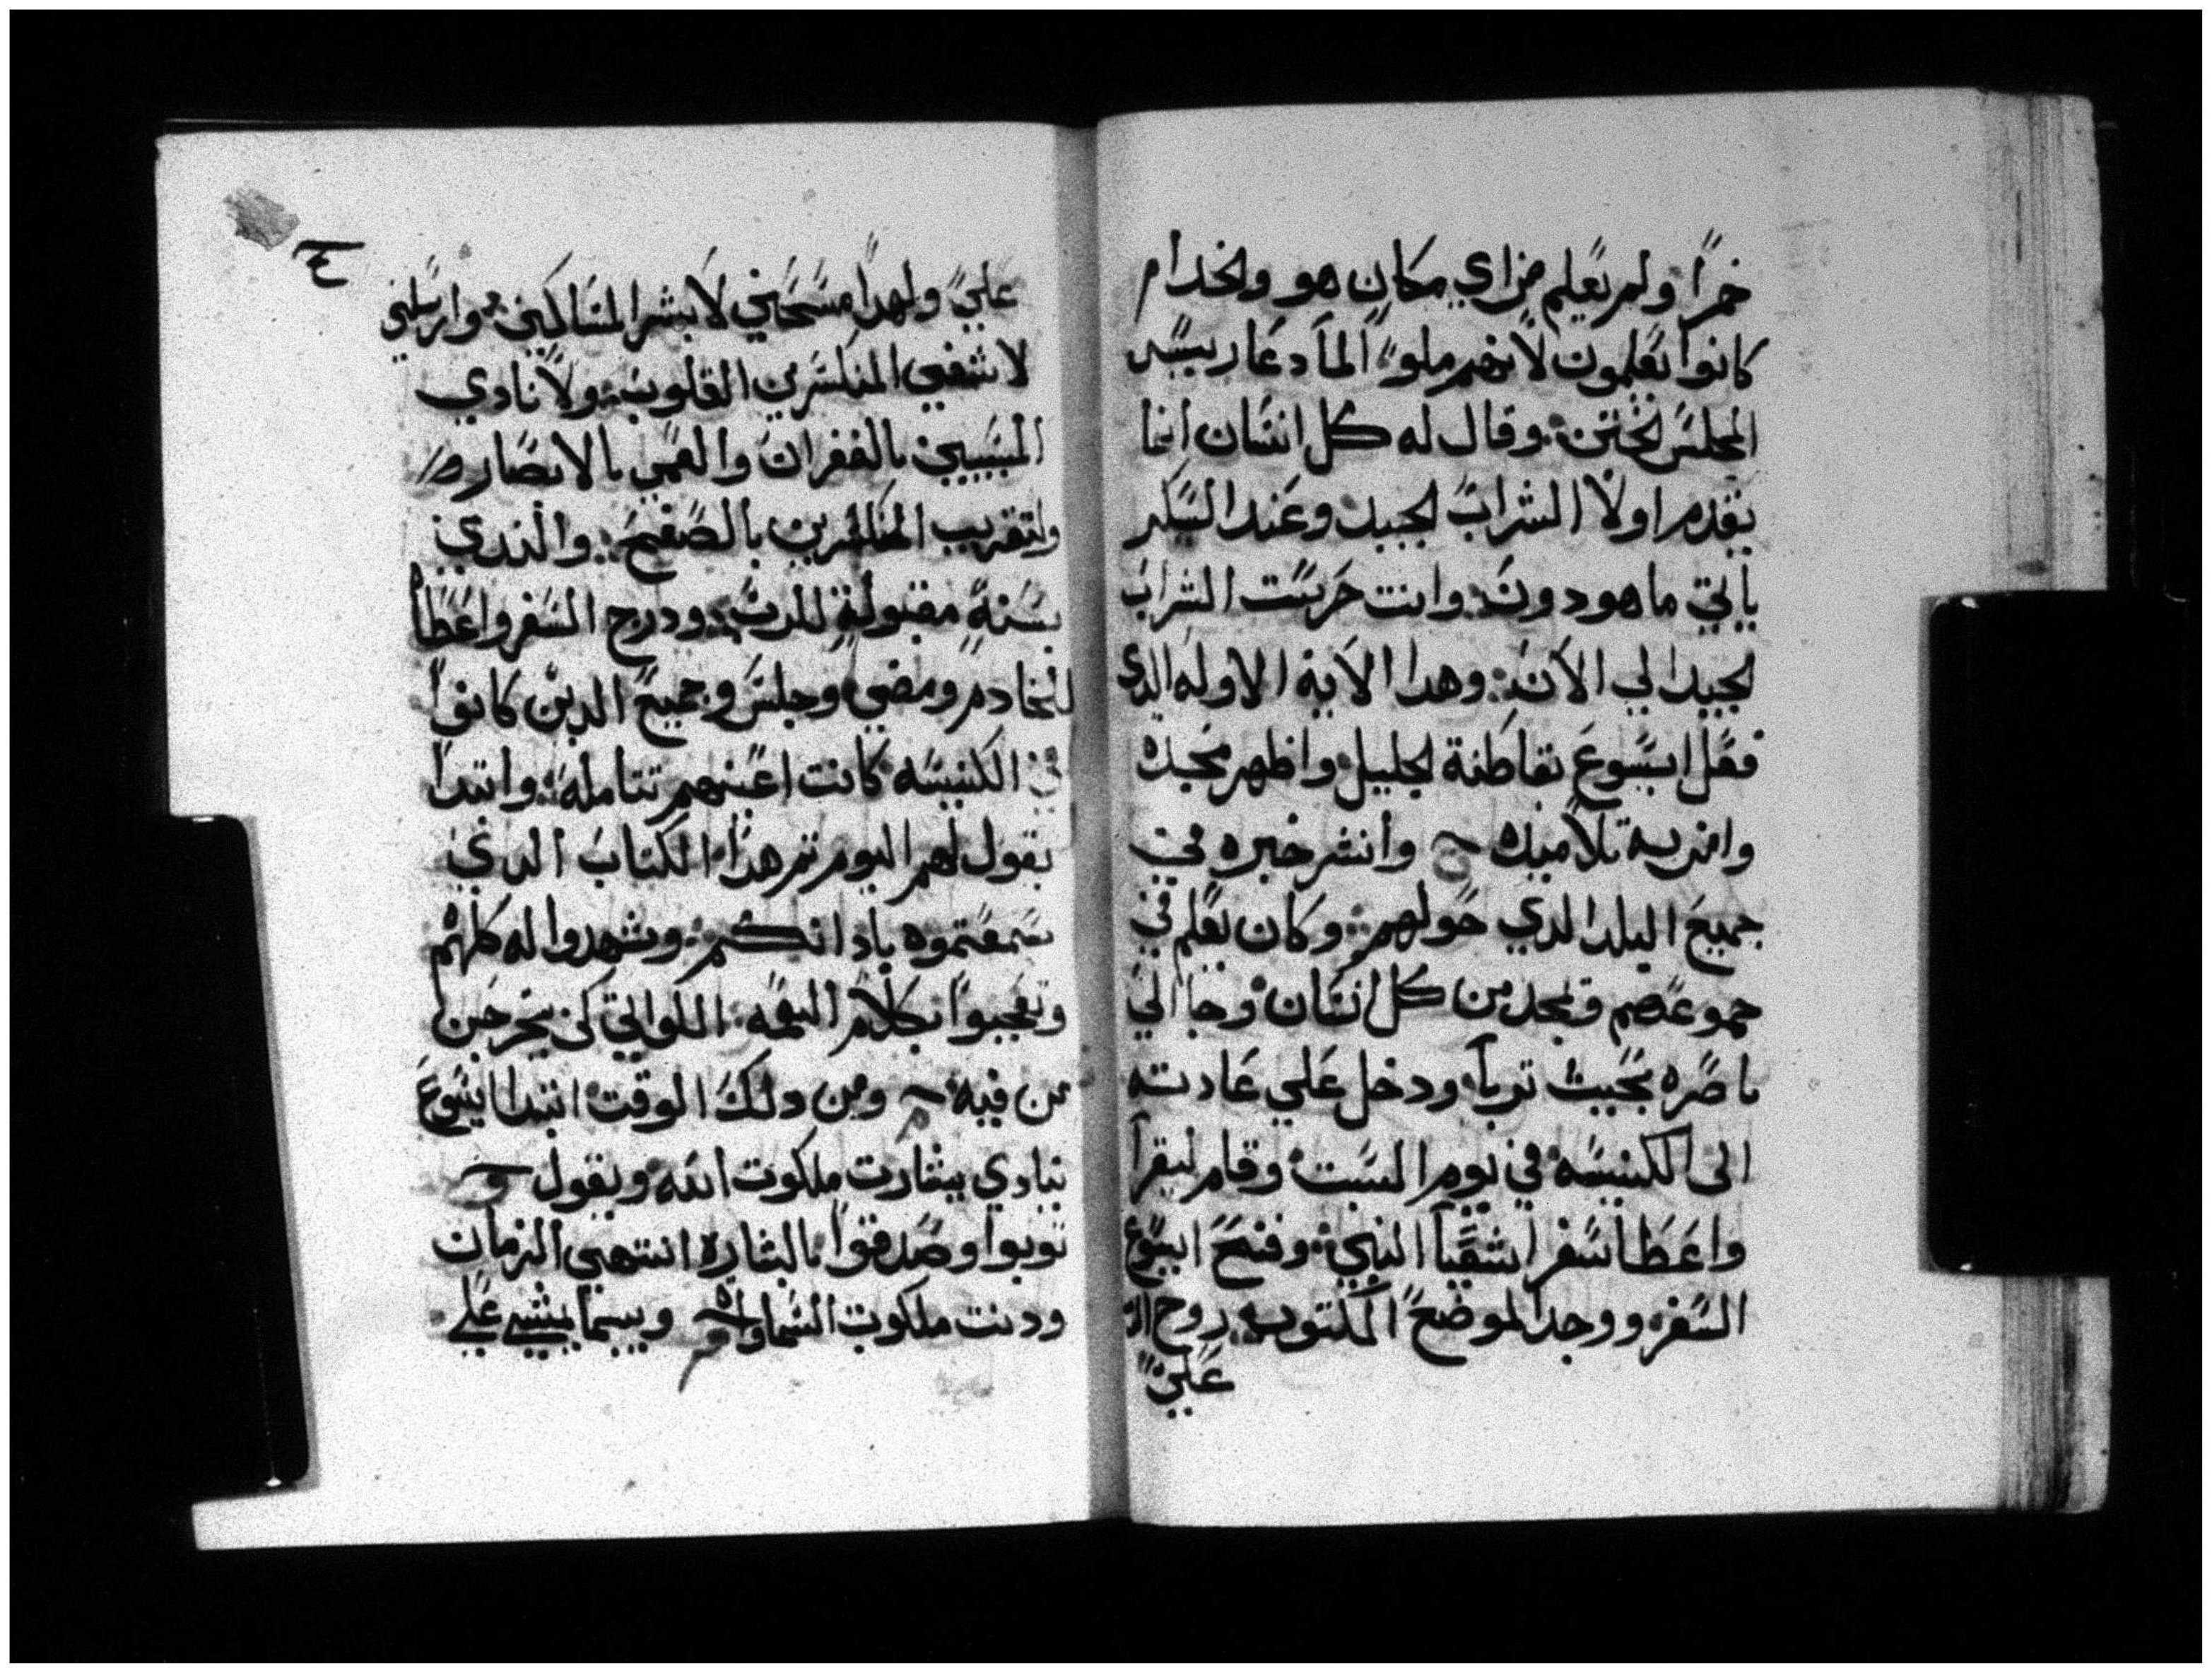 خمرًا ولم يعلم من اي مكان هو والخدام
كانوا يعلمون لانهم ملوا الما دعا رييس
المجلس الختن وقال له كل انسان انما
يقدم اولًا الشراب الجيد وعند السكر
ياتي ما هو دون وانت حرست الشراب
الجيد الي الان وهدا الاية الاوله الدي
فعل ايسوع بقاطنة الجليل واظهر مجده
وامن به تلاميده ح وانشر خبره في
جميع البلد الدي حولهم وكان يعلم في
جموعهم ويمجد من كل انسان وجا الي
ناصره بحيث تربا ودخل علي عادته
الى الكنيسه في يوم السبت وقام ليقرا
واعطا سفر اشعيا النبي وفتح ايسوع
السفر ووجد الموضع المكتوب روح الرب
علي
ع
علي ولهدا مسحني لابشر المساكين وارسلني
لاشفي المنكسرين القلوب ولانادي
المسبيين بالغفران والعمي بالابصار
ولتقريب المنكسرين بالصفح والندي
بسنة مقبولة للرب ودرج السفر واعطاه
للخادم ومضي وجلس وجميع الدين كانوا
في الكنيسه كانت اعينهم تتامله وابتدا
يقول لهم اليوم تم هدا الكتاب الدي
سمعتموه بادانكم وشهدوا له كلهم
وتعجبوا بكلام النعمه اللواتي كن يخرجن
من فيه ومن دلك الوقت ابتدا ايسوع
ينادي ببشارت ملكوت الله ويقول
توبوا وصدقوا بالبشاره انتهي الزمان
ودنت ملكوت السماوات وبينما يمشي علي